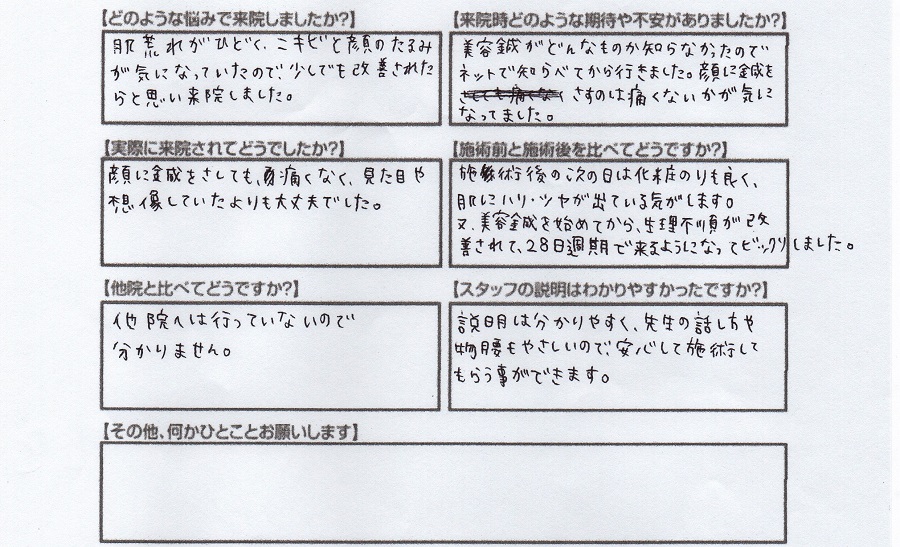 【どのような悩みで来院しましたか?】
肌荒れがひどく、ニキビと顔のたるみ
が気になっていたので、少しでも改善された
らと思い来院しました。
【来院時どのような期待や不安がありましたか?】
美容鍼がどんなものか知らなかったので
ネットで知らべてから行きました。顔に鍼を
さすのは痛くないかが気に
なってました。
【実際に来院されてどうでしたか?】
顔に鍼をさしても、痛くなく、見た目や
想像していたよりも大丈夫でした。
【施術前と施術後を比べてどうですか?】
施術後の次の日は化粧のりも良く、
肌にハリ・ツヤが出ている気がします。
又、美容鍼を始めてから、生理不順が改
善されて、28日週期で来るようになってビックリしました。
【他院と比べてどうですか?】
他院へは行っていないので
分かりません。
【スタッフの説明はわかりやすかったですか?】
説明は分かりやすく、先生の話し方や
物腰もやさしいので、安心して施術して
もらう事ができます。
【その他、何かひとことお願いします】